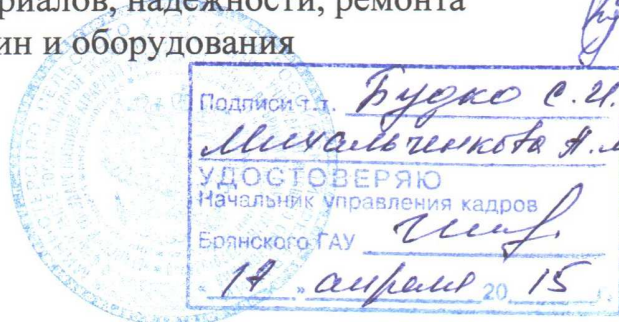 риалов, надежности, ремонта
ин и оборудования
Подписи т.т. Будко С.И.
Михальченкова А.М
УДОСТОВЕРЯЮ
Начальник управления кадров
Брянского ГАУ
"17" апреля 2015 г.